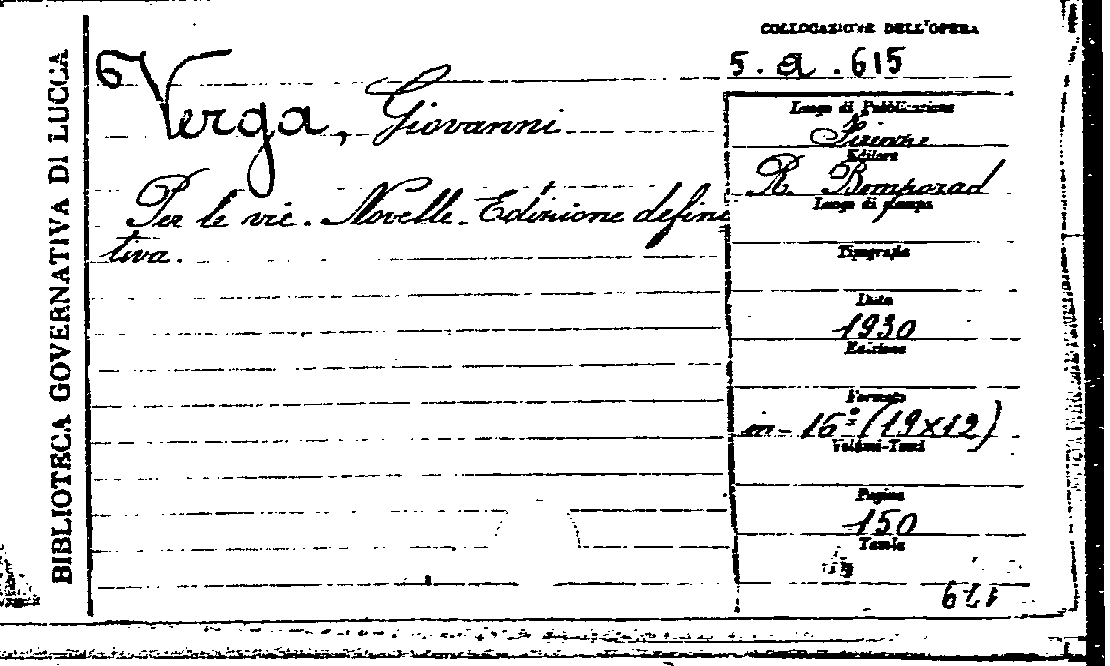 BIBLIOTECA GOVERNATIVA DI LUCCA
COLLOCAZIONE DELL'OPERA
5. a. 615
6
Verga, Giovanni
Per le vie. Novelle. Edizione defini
tiva.
Luogo di Pubblicazione
Firenze
Editore
R. Bemporad
Luogo di stampa
Tipografia
Data
1930
Edizione
Formato
in-16º (19x12)
Volumi-Tomi
Pagine
150
Tavole